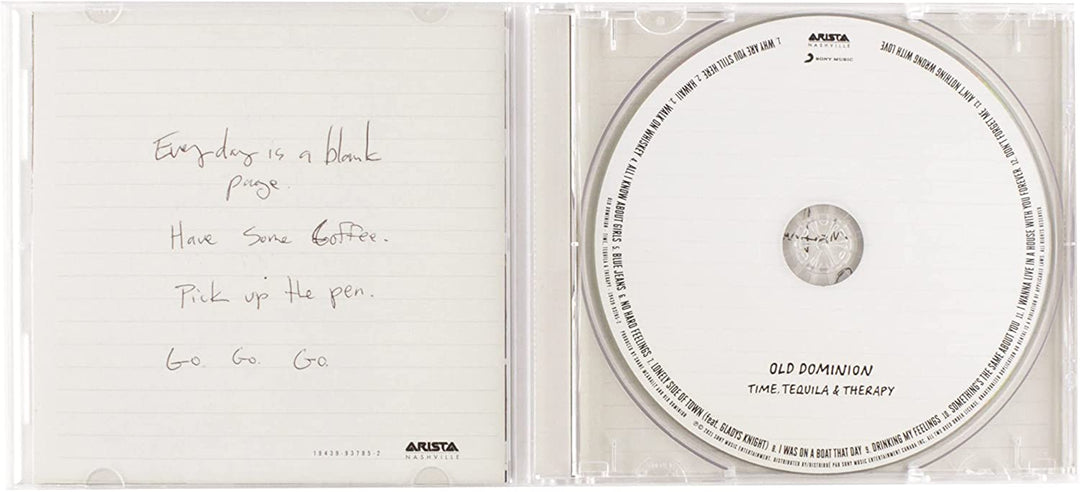 Everyday is a blank
page.
Have Some Coffee.
Pick up the pen.
Go. Go. Go.
19439-93785-2
ARISTA
NASHVILLE
ARISTA
NASHVILLE
SONY MUSIC
1. WHY ARE YOU STILL HERE 2. HAWAII 3. WALK ON WHISKEY 4. ALL I KNOW ABOUT GIRLS 5. BLUE JEANS 6. NO HARD FEELINGS 7. LONELY SIDE OF TOWN (feat. GLADYS KNIGHT) 8. I WAS ON A BOAT THAT DAY 9. DRINKING MY FEELINGS 10. SOMETHING'S THE SAME ABOUT YOU 11. I WANNA LIVE IN A HOUSE WITH YOU FOREVER 12. DON'T FORGET ME 13. AIN'T NOTHING WRONG WITH LOVE
OLD DOMINION
TIME, TEQUILA & THERAPY
OLD DOMINION - TIME, TEQUILA & THERAPY
PRODUCED BY SHANE MCANALLY AND OLD DOMINION